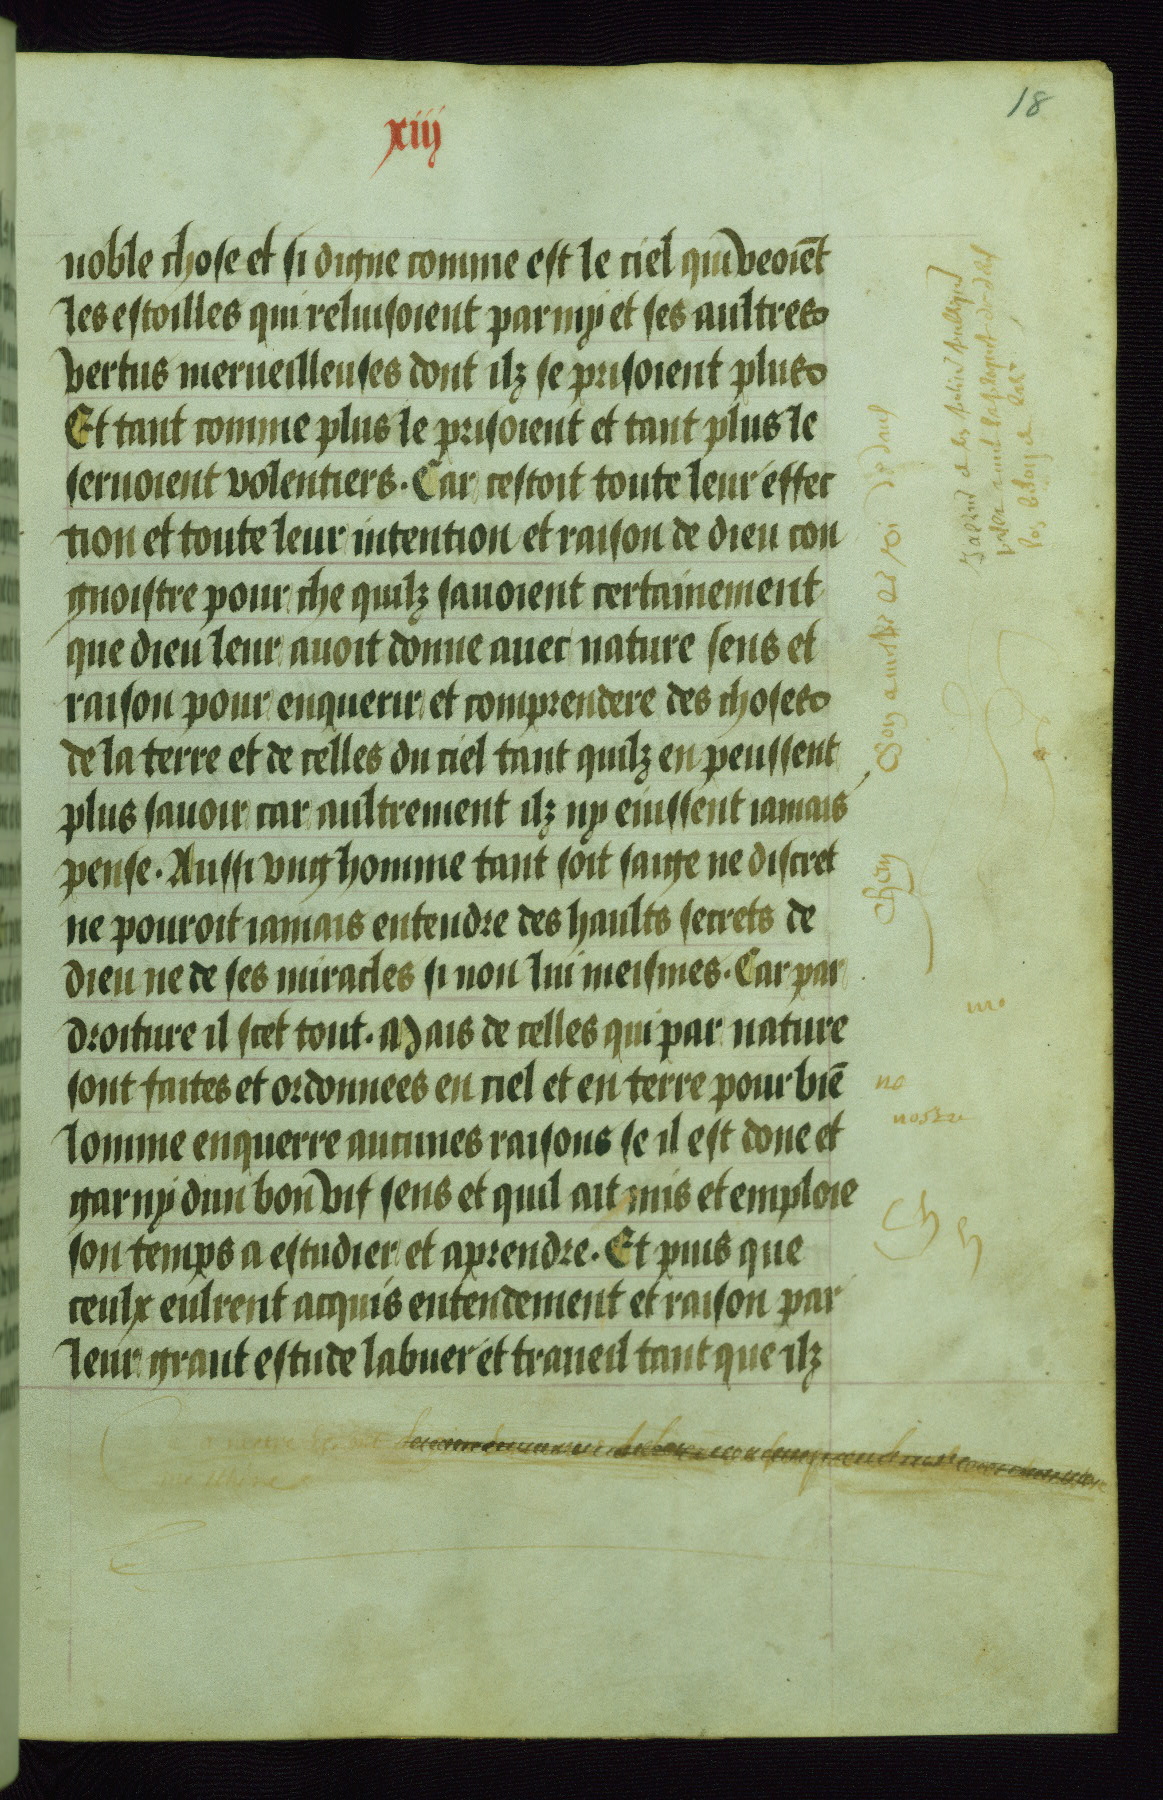 18
xiij
noble chose et si digne comme est le ciel qui veoiēt
les estoilles qui reluisoient parmy et ses aultres
vertus merueilleuses dont ilz se prisoient plus
Et tant comme plus le prisoient et tant plus le
seruoient volentiers. Car cestoit toute leur effec
tion et toute leur intention et raison de dieu con
gnoistre pour che quilz sauoient certainement
que dieu leur auoit donne auec nature sens et
raison pour enquerir et comprendere des choses
de la terre et de celles du ciel tant quilz en peussent
plus sauoir car aultrement ilz ny eiussent iamais
pense. Aussi vng homme tant soit saige ne discret
ne pouroit iamais entendre des haults secrets de
dieu ne de ses miracles si non lui meismes. Car par
droiture il scet tout. Mais de celles qui par nature
sont faites et ordonnees en ciel et en terre pour biē
lomme enquerre aucunes raisons se il est done et
garny dun bon vif sens et quil ait mis et emploie
son temps a estudier et aprendre. Et puis que
ceulx eulrent acquis entendement et raison par
leur grant estude labuer et traueil tant que ilz
no